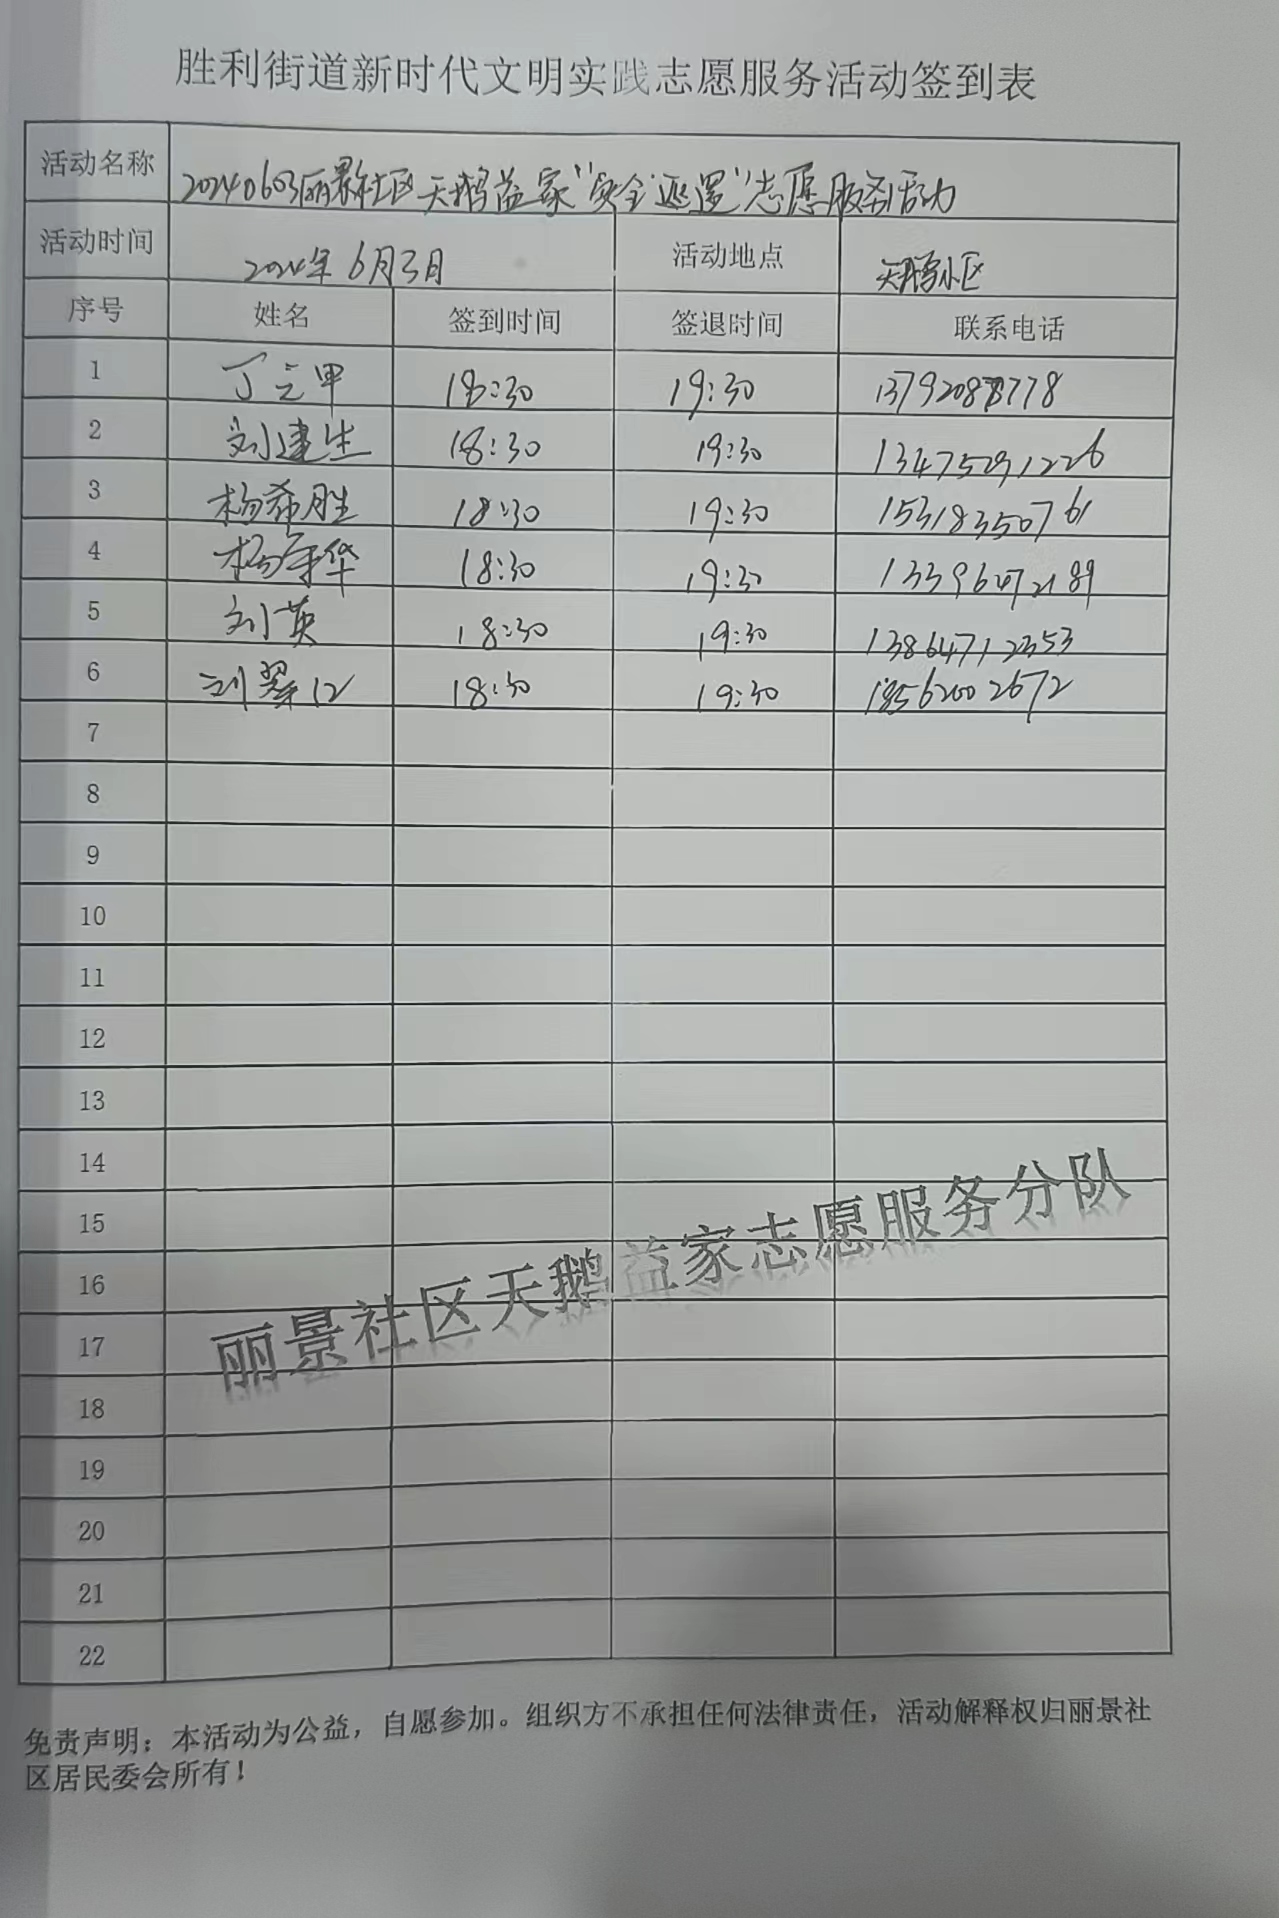 胜利街道新时代文明实践志愿服务活动签到表
活动名称 20240603丽景社区天鹅益家“安全巡逻”志愿服务活动
活动时间 2024年6月3日 活动地点 天鹅小区
序号 姓名 签到时间 签退时间 联系电话
1 丁立甲 18:30 19:30 13792088778
2 刘建生 18:30 19:30 13475291226
3 杨希胜 18:30 19:30 15318350761
4 18:30 19:30 13396072189
5 刘英 18:30 19:30 13864712353
6 18:30 19:30 18562002672
7
8
9
10
11
12
13
14
15
16
17
18
19
20
21
22
丽景社区天鹅益家志愿服务分队
免责声明：本活动为公益，自愿参加。组织方不承担任何法律责任，活动解释权归丽景社
区居民委会所有！